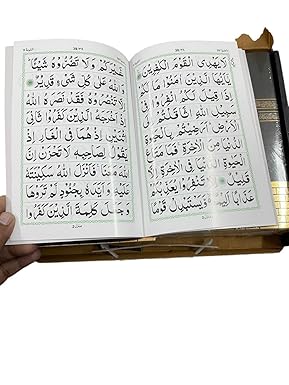 لَا يَهْدِى الْقَوْمَ الْكٰفِرِيْنَ
يٰۤاَيُّهَا الَّذِيْنَ اٰمَنُوْا مَا لَكُمْ
اِذَا قِيْلَ لَكُمُ انْفِرُوْا فِىْ
سَبِيْلِ اللّٰهِ اثَّاقَلْتُمْ اِلَى
الْاَرْضِ اَرَضِيْتُمْ بِالْحَيٰوةِ
الدُّنْيَا مِنَ الْاٰخِرَةِ فَمَا مَتَاعُ
الْحَيٰوةِ الدُّنْيَا فِى الْاٰخِرَةِ اِلَّا
قَلِيْلٌ اِلَّا تَنْفِرُوْا يُعَذِّبْكُمْ
عَذَابًا اَلِيْمًا وَّيَسْتَبْدِلْ قَوْمًا
غَيْرَكُمْ وَلَا تَضُرُّوْهُ شَيْئًا
وَاللّٰهُ عَلٰى كُلِّ شَىْءٍ قَدِيْرٌ
اِلَّا تَنْصُرُوْهُ فَقَدْ نَصَرَهُ اللّٰهُ
اِذْ اَخْرَجَهُ الَّذِيْنَ كَفَرُوْا ثَانِىَ
اثْنَيْنِ اِذْ هُمَا فِى الْغَارِ اِذْ
يَقُوْلُ لِصَاحِبِهٖ لَا تَحْزَنْ اِنَّ
اللّٰهَ مَعَنَا فَاَنْزَلَ اللّٰهُ سَكِيْنَتَهٗ
عَلَيْهِ وَاَيَّدَهٗ بِجُنُوْدٍ لَّمْ تَرَوْهَا
وَجَعَلَ كَلِمَةَ الَّذِيْنَ كَفَرُوا